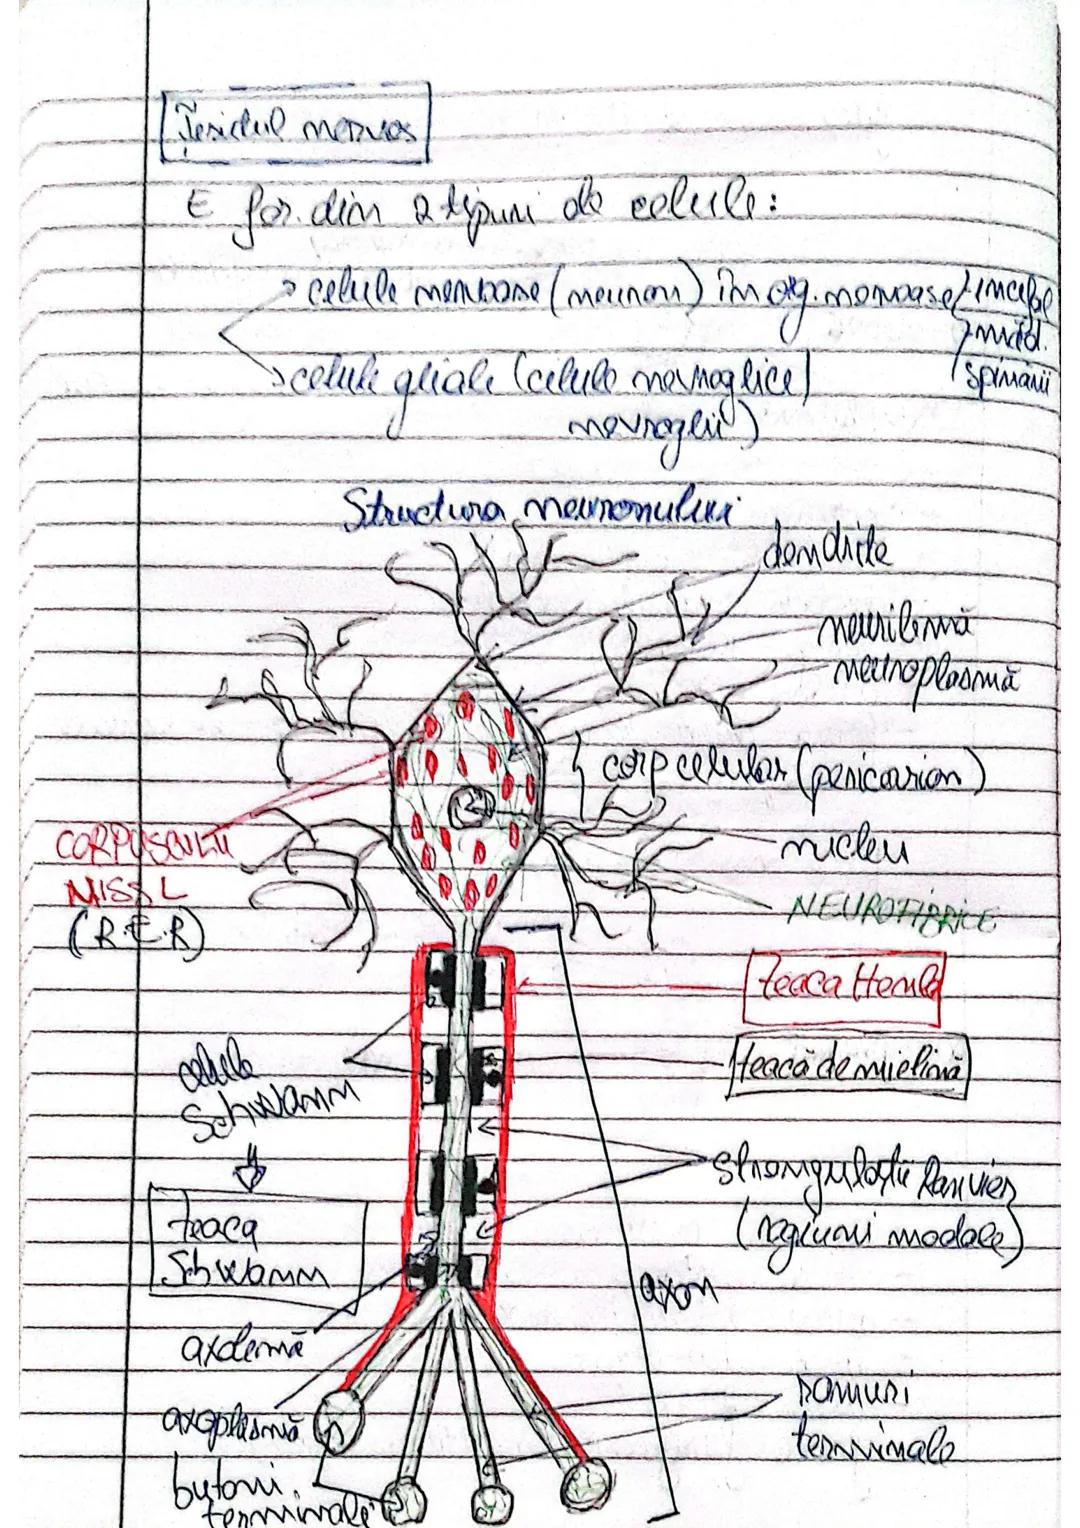 Țesutul nervos
E for. din 2 tipuri de celule:
celule nervoase (neuron) în org. nervoase encefal
măd.
spinării
celule gliale (celule nevroglice/
nevroglii)
Structura neuronului
dendrite
neurilemă
neuroplasmă
corp celular (pericarion)
CORPUSCULII
NISSL
(R.E.R)
nucleu
NEUROFIBRILE
teaca Henle
teacă de mielină
celule
Schwann
strangulații Ranvier
(regiuni nodale)
teaca
Schwann
axon
axolemă
axoplasmă
ramuri
terminale
butoni
terminali